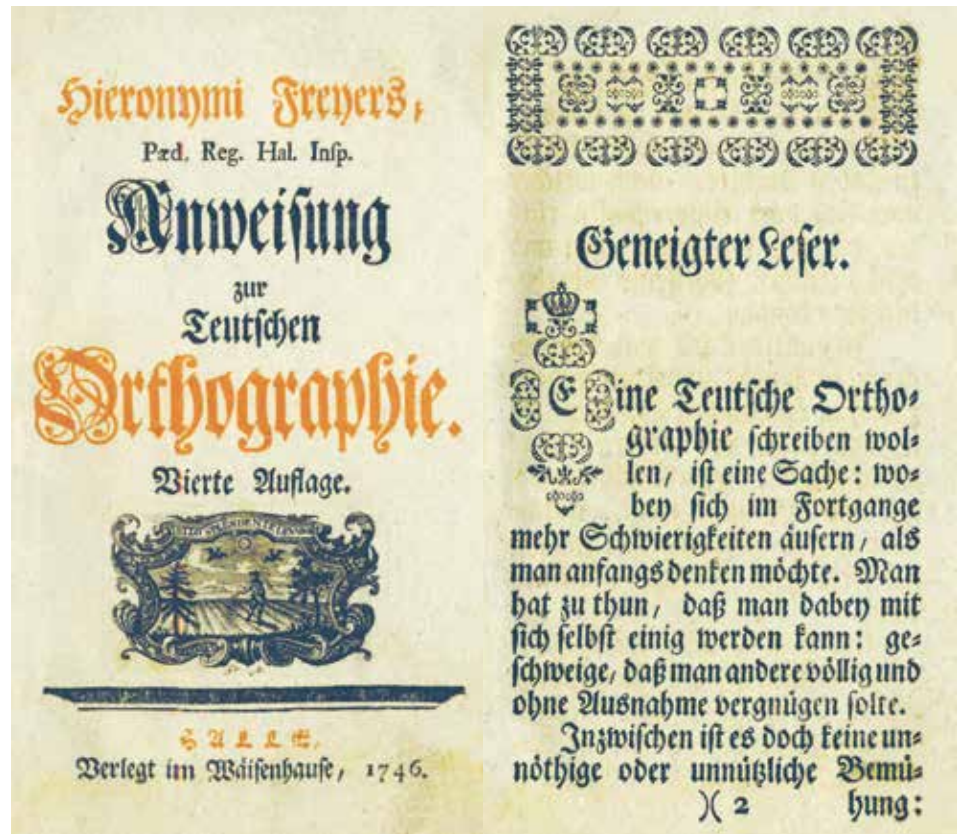 Hieronymi Freyers,
Pæd. Reg. Hal. Inſp.
Anweiſung
zur
Teutſchen
Orthographie.
Vierte Auflage.
HALLE,
Verlegt im Wäiſenhauſe, 1746.
Geneigter Leſer.
Eine Teutſche Ortho⸗
graphie ſchreiben wol⸗
len, iſt eine Sache: wo⸗
bey ſich im Fortgange
mehr Schwierigkeiten äuſern, als
man anfangs denken möchte. Man
hat zu thun, daß man dabey mit
ſich ſelbſt einig werden kann: ge⸗
ſchweige, daß man andere völlig und
ohne Ausnahme vergnügen ſolte.
Inzwiſchen iſt es doch keine un⸗
nöthige oder unnützliche Bemü⸗
)( 2 hung: